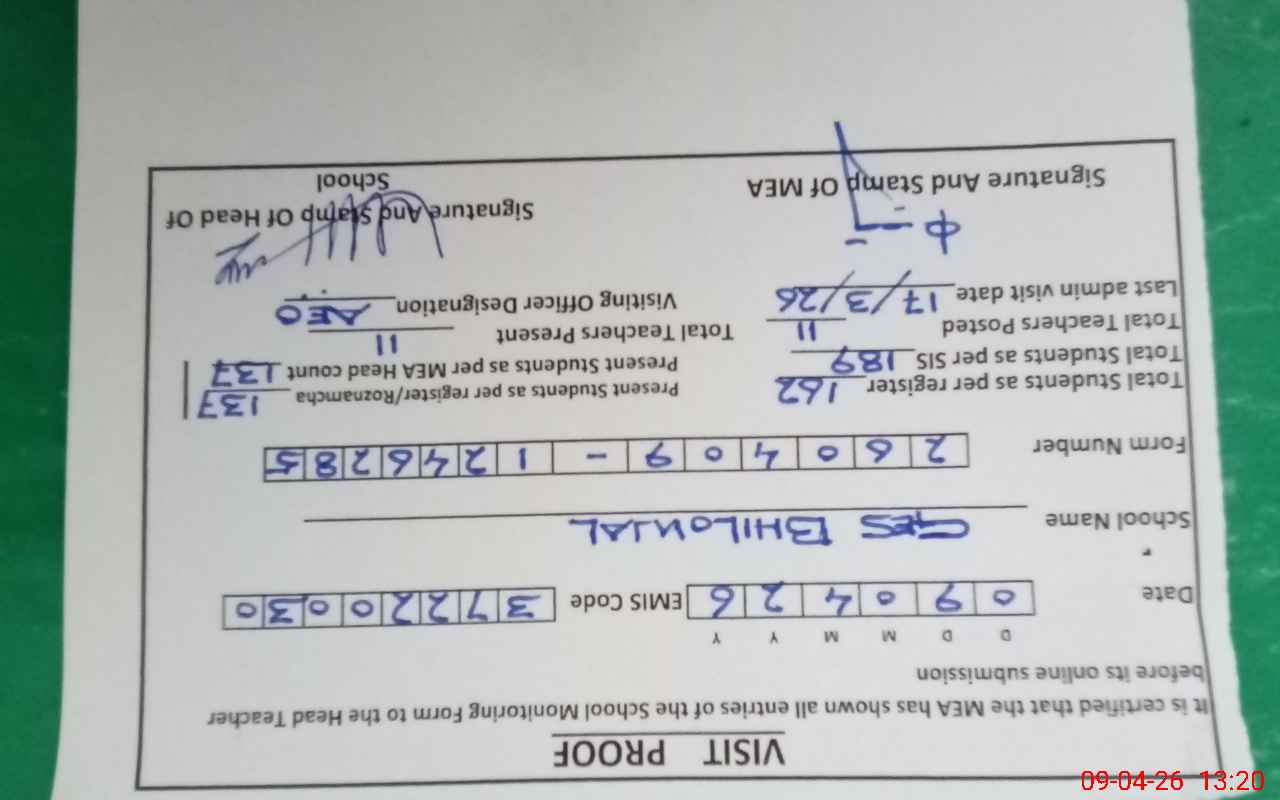 VISIT PROOF
It is certified that the MEA has shown all entries of the School Monitoring Form to the Head Teacher
before its online submission
D D M M Y Y
Date 0 9 0 4 2 6 EMIS Code 3 7 2 2 0 0 3 0
School Name GES BHILOWAL
Form Number 2 6 0 4 0 9 - 1 2 4 6 2 8 5
Total Students as per register 162 Present Students as per register/Roznamcha 137
Total Students as per SIS 189 Present Students as per MEA Head count 137
Total Teachers Posted 11 Total Teachers Present 11
Last admin visit date 17/3/26 Visiting Officer Designation AEO
Signature And Stamp Of MEA Signature And Stamp Of Head Of
School
09-04-26 13:20